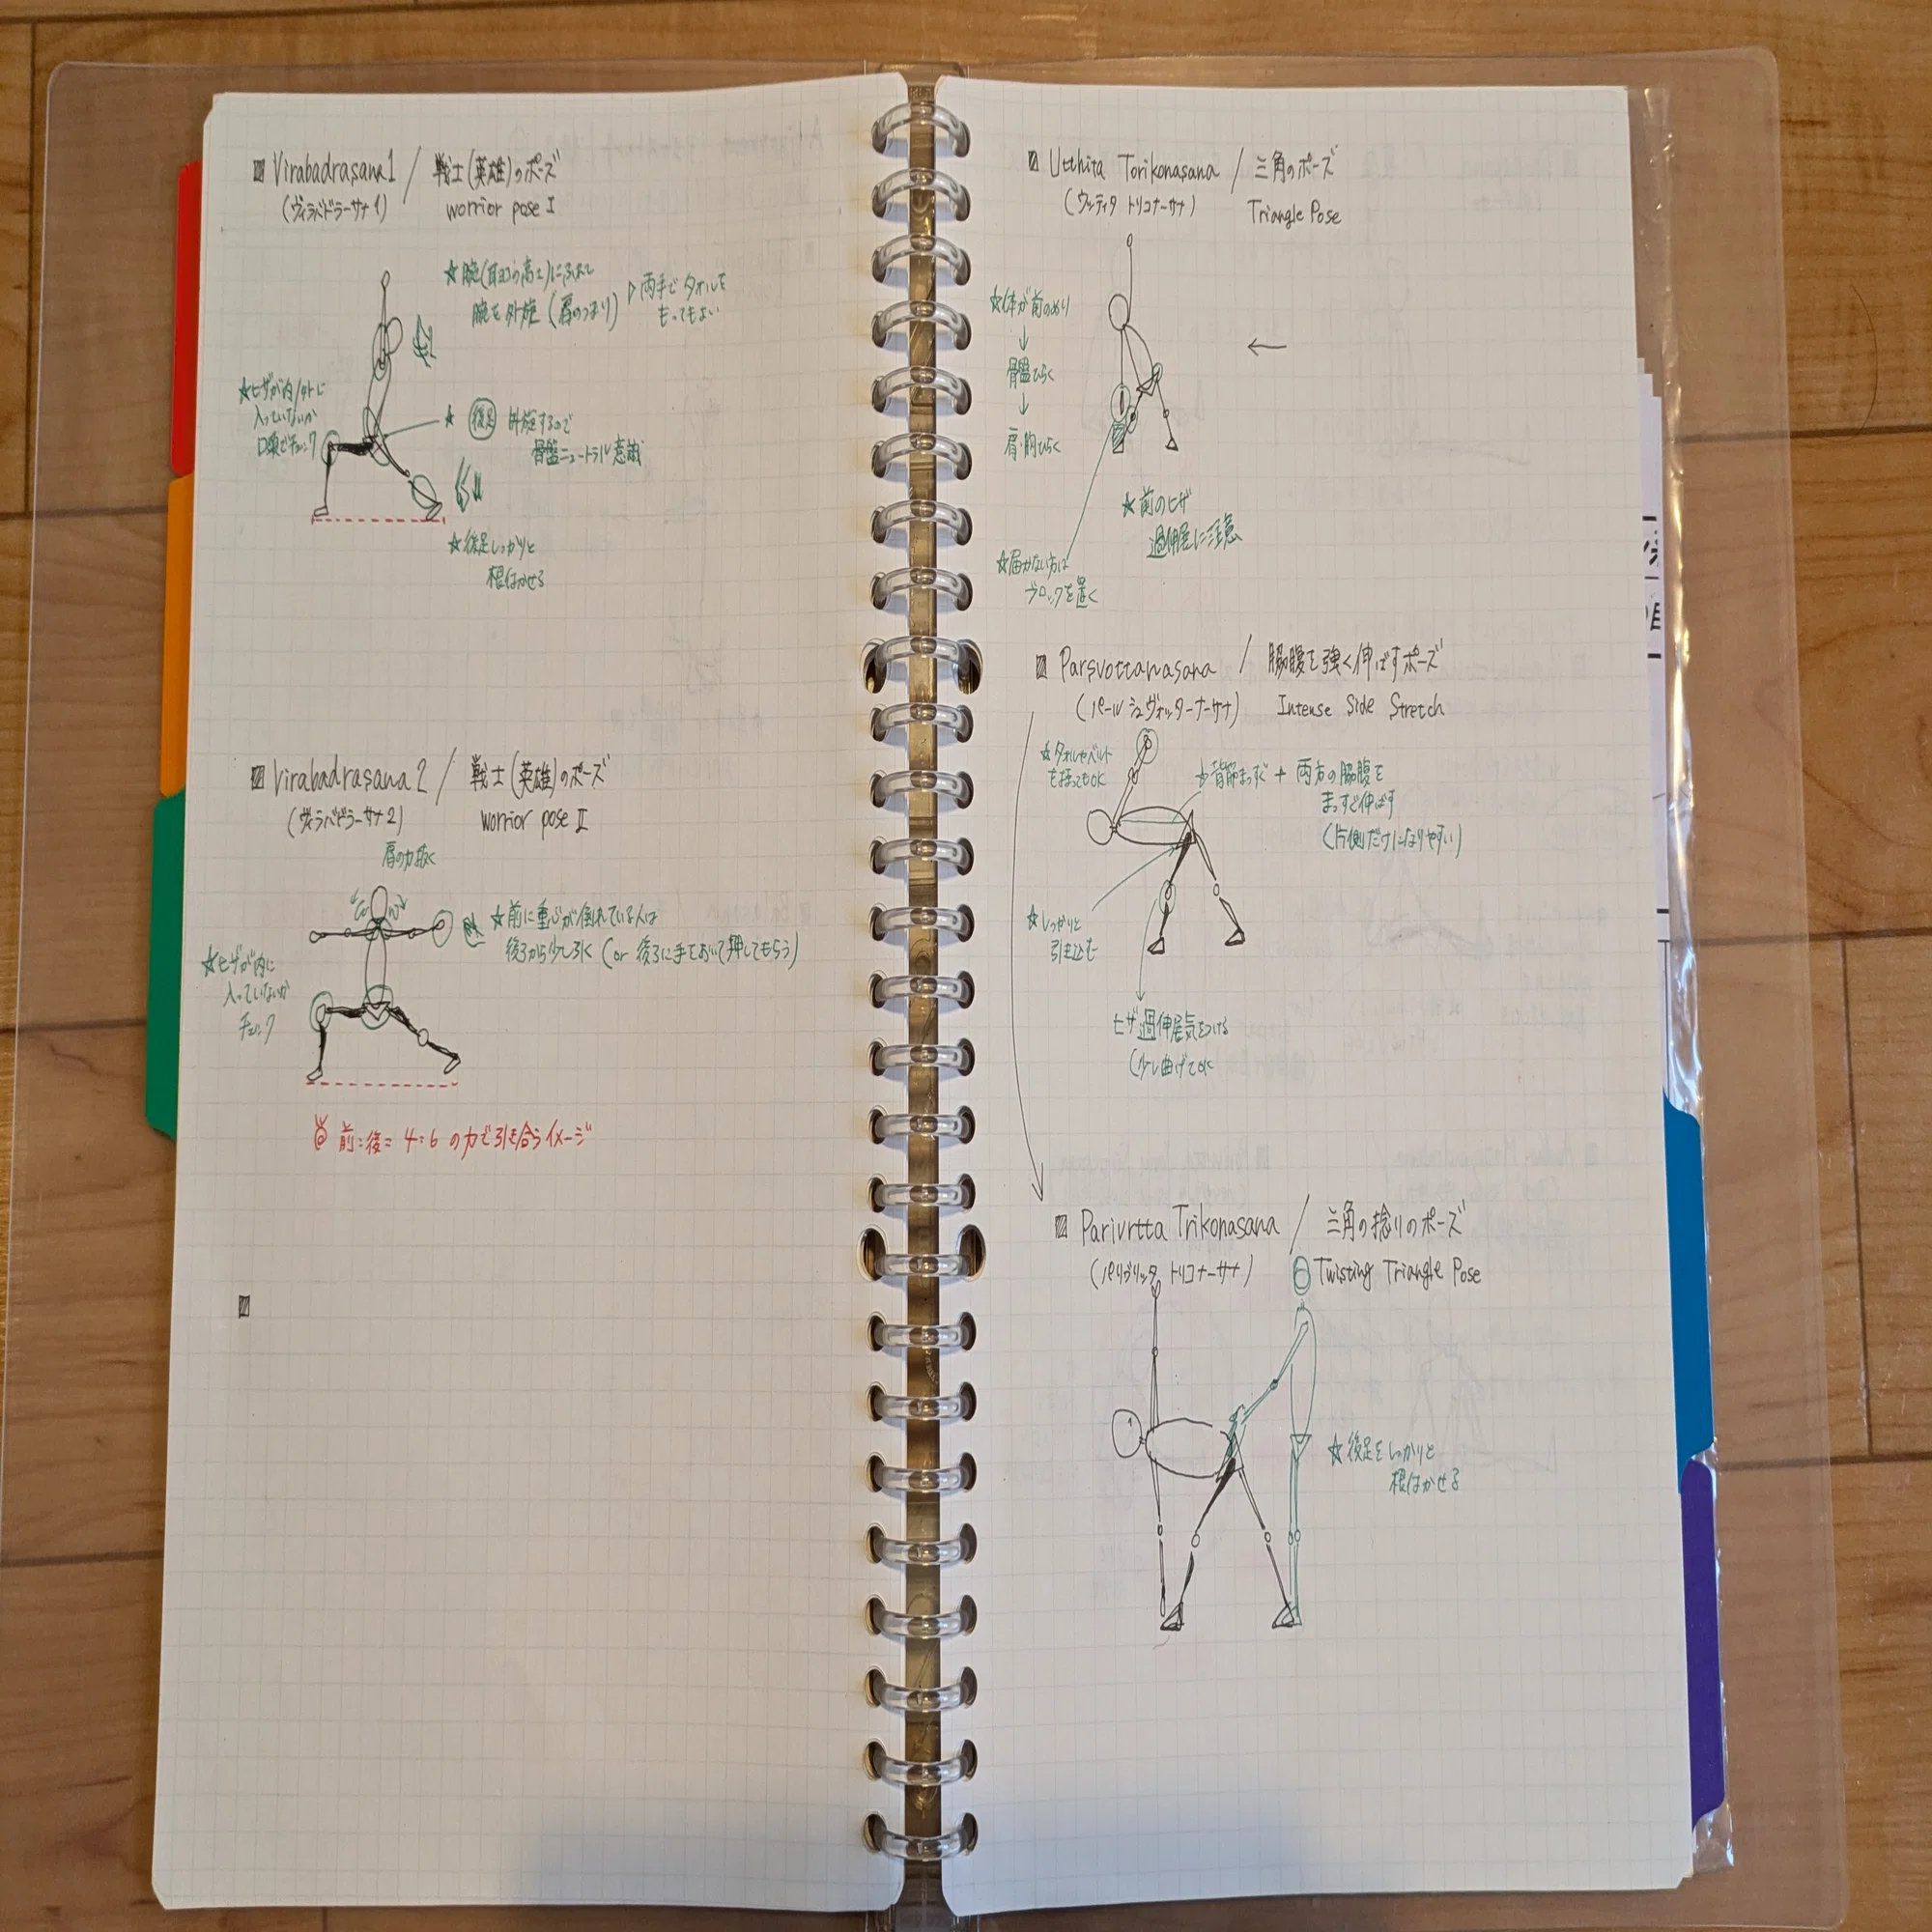 Virabadrasana1 / 戦士(英雄)のポーズ
(ヴィラバドラーサナ1) worrior pose I
☆腕(耳の高さ)に
腕を外旋(肩のつまり)
▷両手でタオルを
もってもよい
☆ヒザが内/外に
入っていないか
口頭でチェック
☆ 後足 外旋するので
骨盤ニュートラル意識
☆後足しっかりと
根付かせる
Virabadrasana2 / 戦士(英雄)のポーズ
(ヴィラバドラーサナ2) worrior pose II
肩の力抜く
☆前に重心が倒れている人は
後ろから少し引く(or 後ろに手をおいて押してもらう)
☆ヒザが内に
入っていないか
チェック
前:後= 4:6 の力で引き合うイメージ
Utthita Torikonasana / 三角のポーズ
(ウッティタ トリコナーサナ) Triangle Pose
☆体が前のめり
↓
骨盤ひらく
↓
肩・胸ひらく
←
☆前のヒザ
過伸展に注意
☆届かない方は
ブロックを置く
Parsvottanasana / 脇腹を強く伸ばすポーズ
(パールシュヴォッターナーサナ) Intense Side Stretch
☆タオルやベルト
を持ってもOK
☆背筋まっすぐ + 両方の脇腹を
まっすぐ伸ばす
(片側だけになりやすい)
☆しっかりと
引き込む
ヒザ過伸展気をつける
(少し曲げてOK
Parivrtta Trikonasana / 三角の捻りのポーズ
(パリヴリッタ トリコナーサナ) Twisting Triangle Pose
☆後足をしっかりと
根付かせる